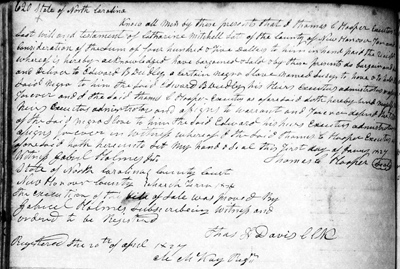 628 State of North Carolina
Know all Men by these presents that I Thomas C Hooper Executor
Last Will and testament of Catharine Mitchell of the County of New Hanover
Consideration of the sum of four hundred & five dollars to him in hand paid the
whereof is hereby acknowledged have bargained & sold & by these presents do bargain
and Deliver to Edward B Dudley a certain negro Slave named to have & to hold
Said Negro to him the Said Edward B Dudley his Heirs Executors administrators
forever and I the Said Thomas C Hooper Executor as aforesaid doth hereby bind
heirs Executors administrators & assigns to warrant and forever defend the
of the Said Negro Slave to him the Said Edward his heirs Executors administrators
assigns forever in witness whereof I the Said Thomas C Hooper Executor
aforesaid hath hereunto set my hand & Seal this first day of 1827
Witness Gabriel Holmes Thomas C Hooper (Seal)
State of North Carolina County Court
New Hanover County March Term 1827
The execution of the bill of Sale was proved By
Gabriel Holmes Subscribing Witness and
ordered to be Registered
Thos F Davis Clk
Registered the 10th of April 1827
McKay Regr